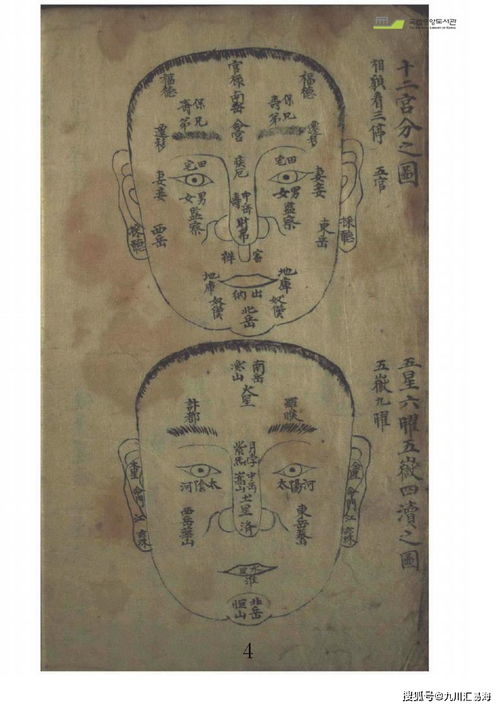 국립중앙도서관
十二宮分之圖
相貌看三停 五官
官祿
南岳
命宮
福德
福德
保兄
壽弟
保兄
壽弟
遷移
遷移
疾厄
田宅
田宅
男女
男女
妻妾
妻妾
中岳
壽
財帛
監察
監察
採聽
採聽
西岳
東岳
地庫
地庫
出納
奴僕
奴僕
北岳
五星六曜五嶽四瀆之圖
五嶽九曜
南岳
衡山
火星
計都
羅睺
月孛
紫炁
中岳
嵩山
土星
濟
太陰
河
太陽
河
西岳華山
東岳泰山
木星
命門
江
金星
命門
江
水星
淮
北岳
恒山
4
搜狐号@九川汇易海